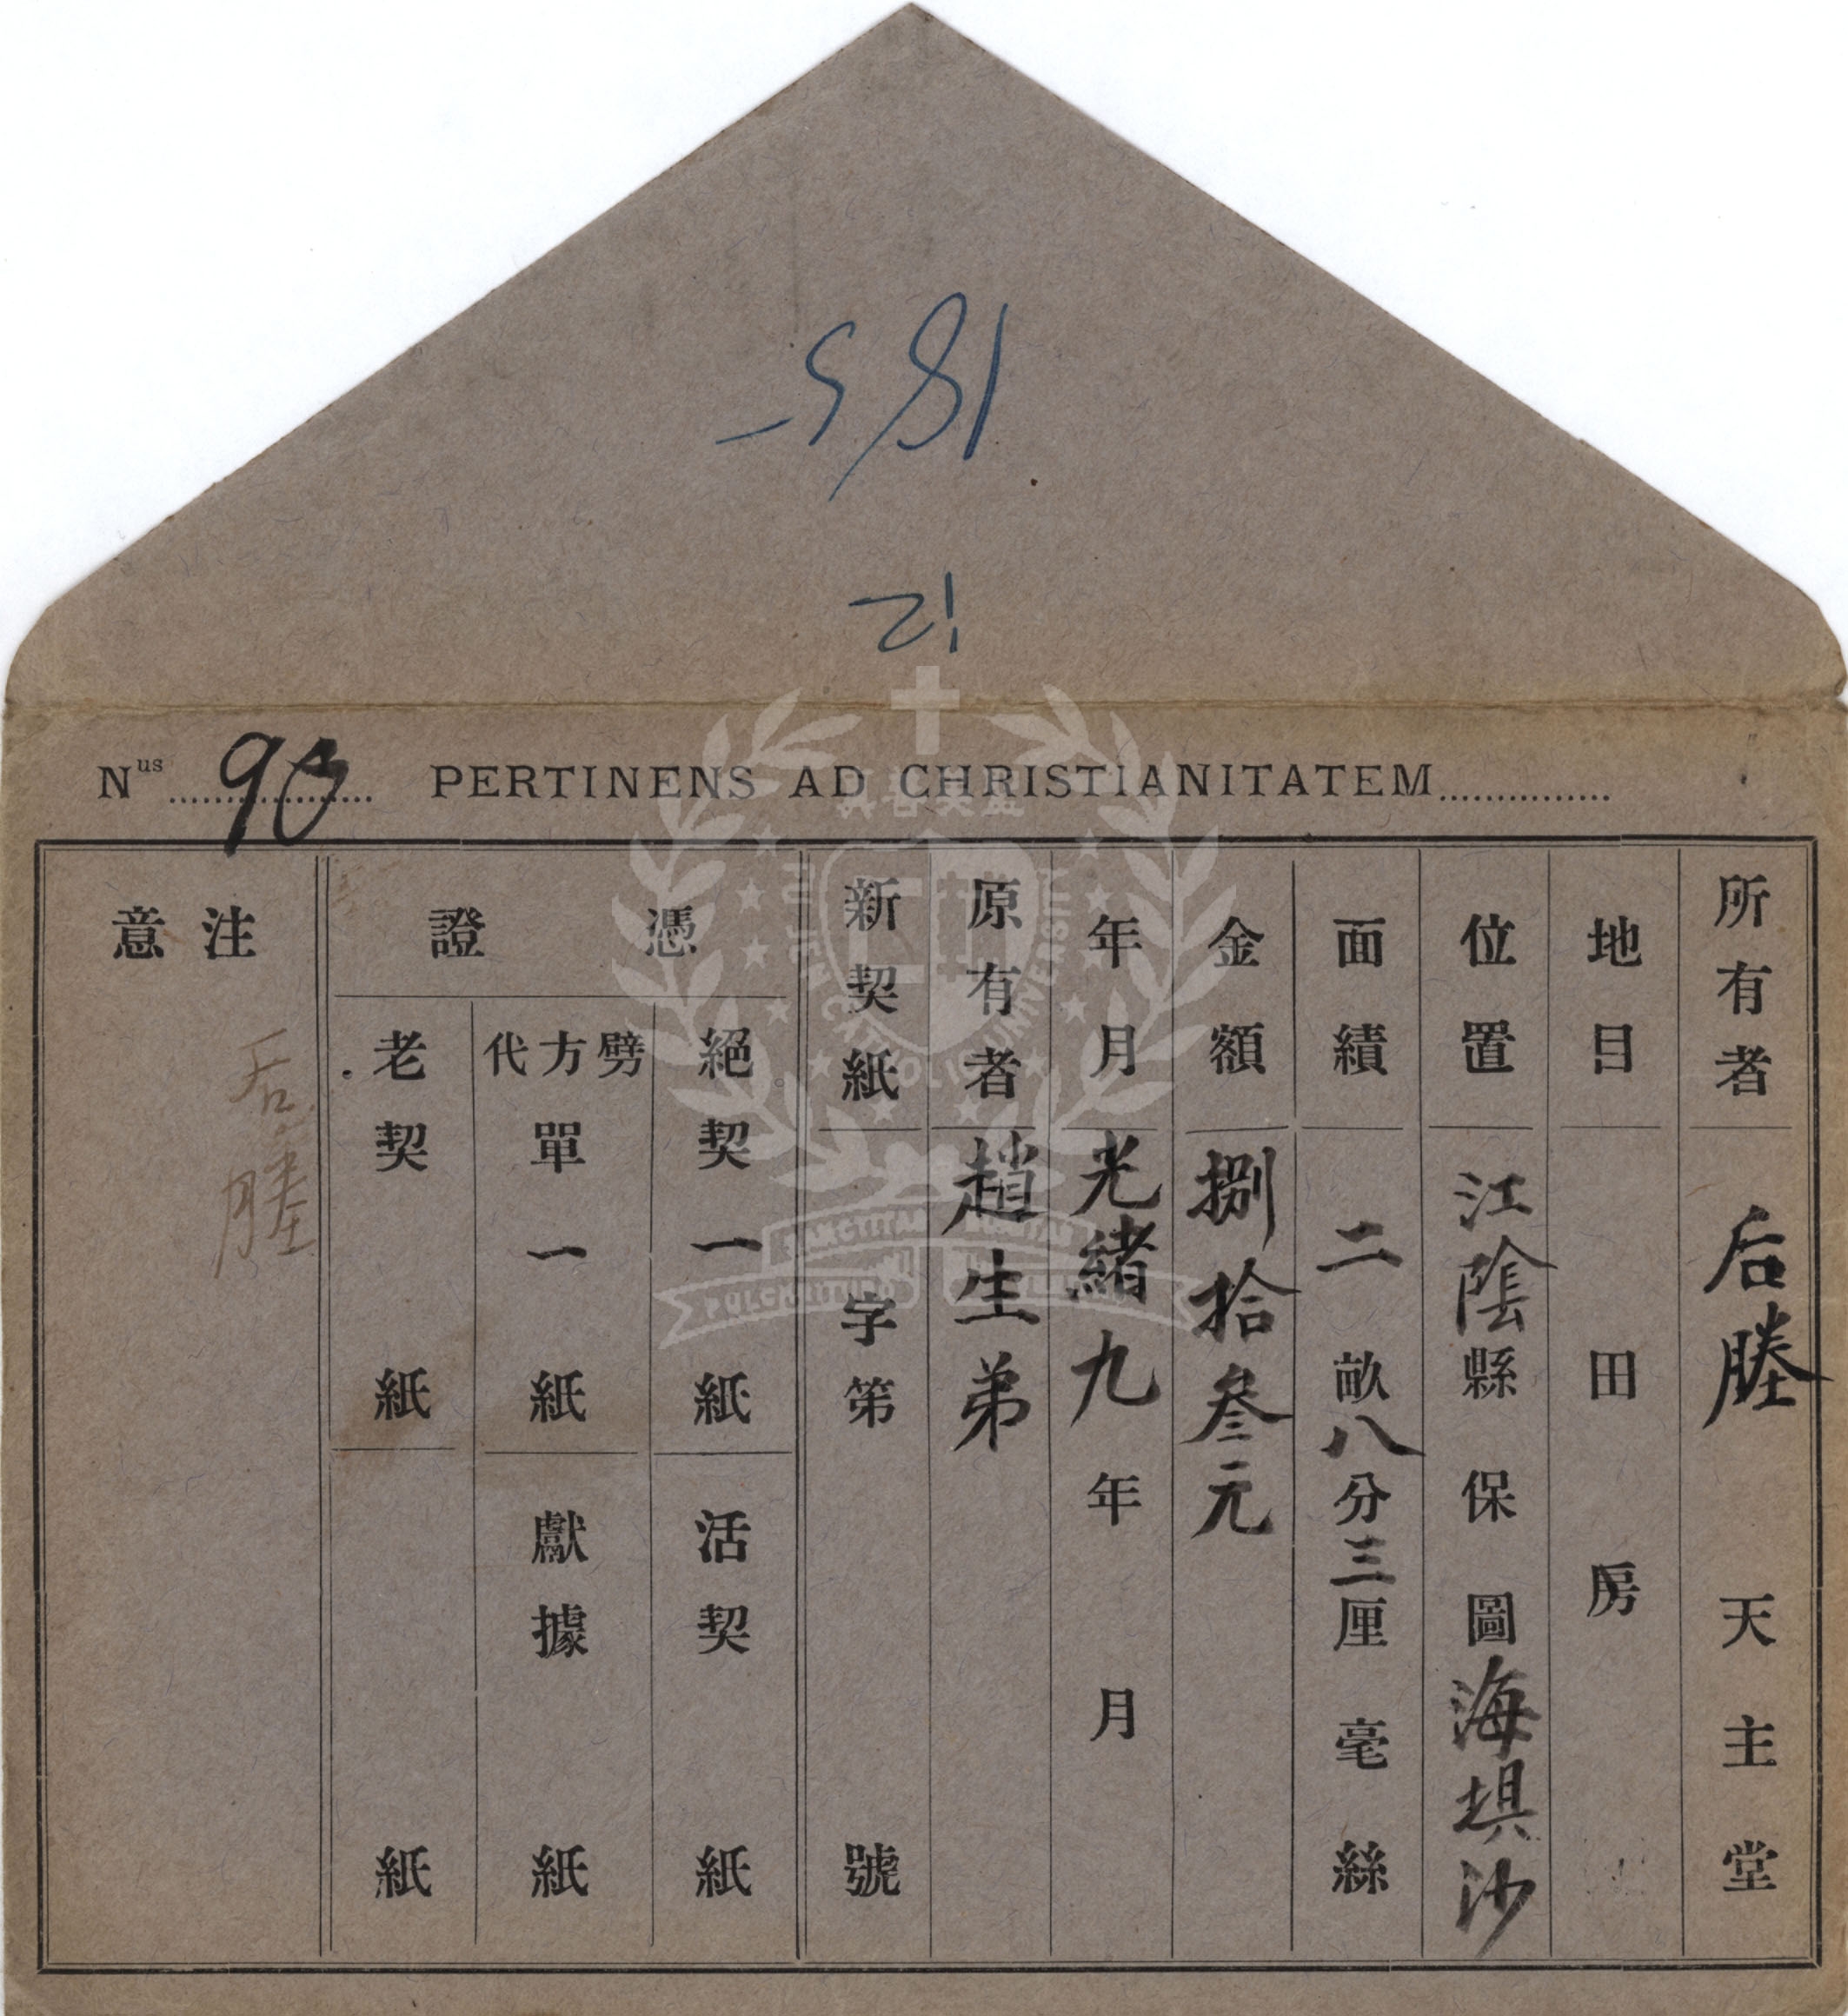 185
12
Nus 90 PERTINENS AD CHRISTIANITATEM
所有者 后塍 天主堂
地目 田 房
位置 江陰縣 保 圖海垻沙
面績 二畝八分三厘 毫 絲
金額 捌拾叁元
年月 光緒九年 月
原有者 趙生弟
新契紙 字第 號
憑證
絕契一紙
活契 紙
劈方代單一紙
獻據 紙
老契 紙
紙
注意
后塍
FU JEN CATHOLIC UNIVERSITY
真善美聖